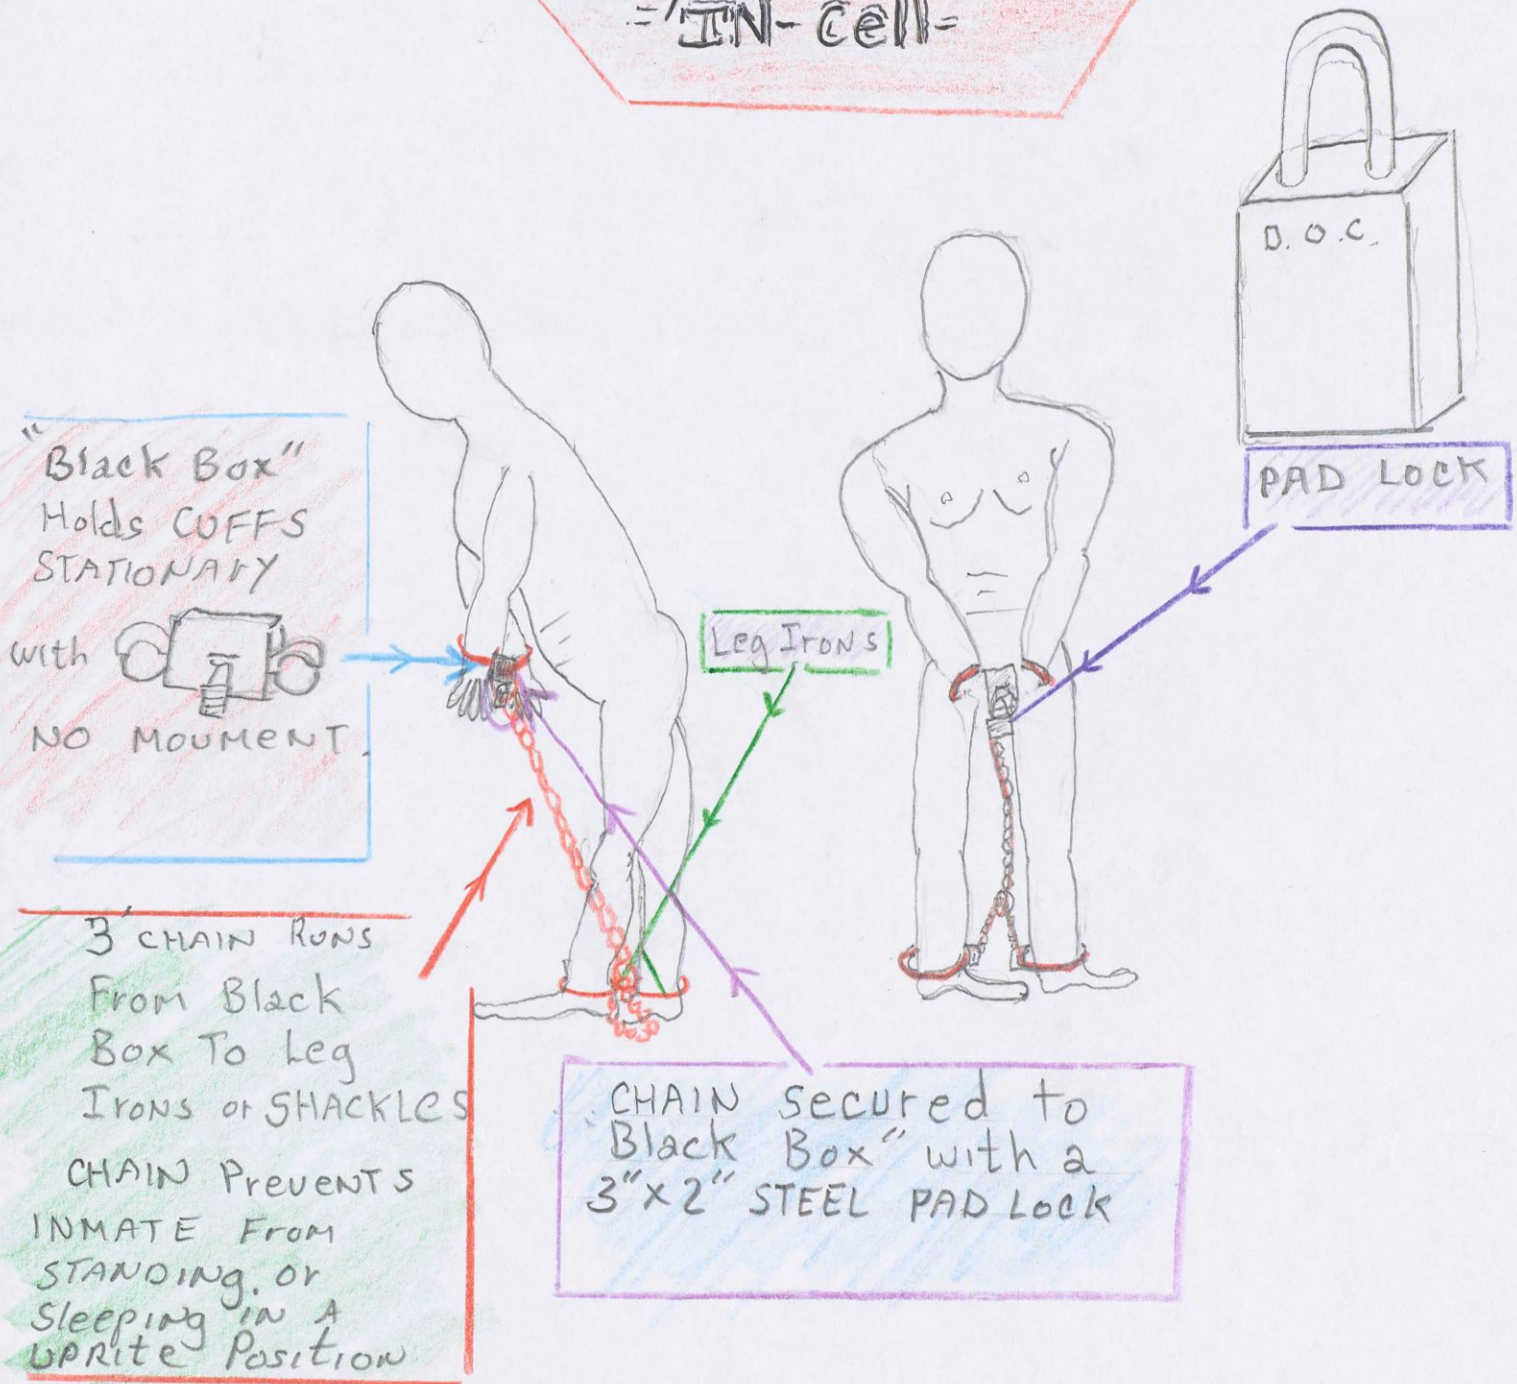 ="IN-Cell=
D.O.C.
PAD LOCK
"Black Box"
Holds CUFFS
STATIONARY
with
NO MOUMENT.
Leg Irons
3' CHAIN RUNS
From Black
Box To Leg
Irons or SHACKLES
CHAIN PrevenTs
INMATE From
STANDING. or
Sleeping IN A
UPRITE POSITION
CHAIN Secured to
Black Box" with a
3"X2" STEEL PAD LOCK